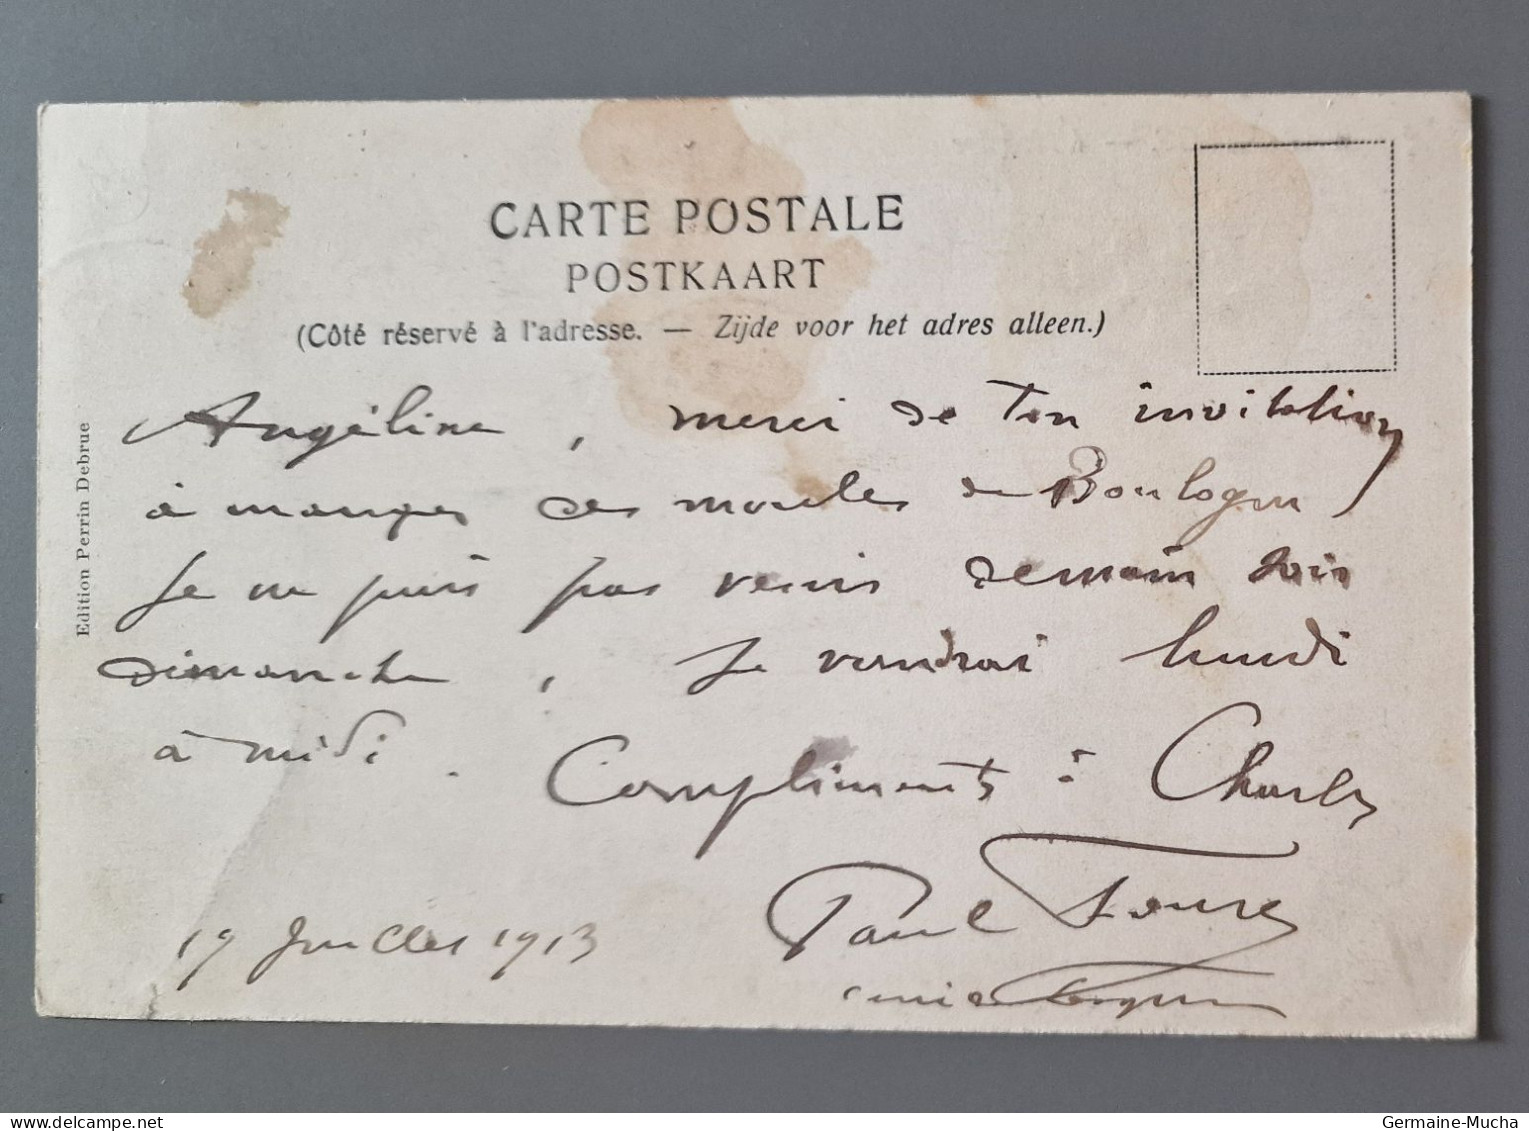 CARTE POSTALE
POSTKAART
(Côté réservé à l'adresse. — Zijde voor het adres alleen.)
Edition Perrin Debrue
Angéline, merci de ton invitation
à manger des moules de Boulogne
Je ne puis pas venir demain soir
dimanche, Je viendrai lundi
à midi. Compliments à Charles
Paul
19 Juillet 1913
Germaine-Mucha